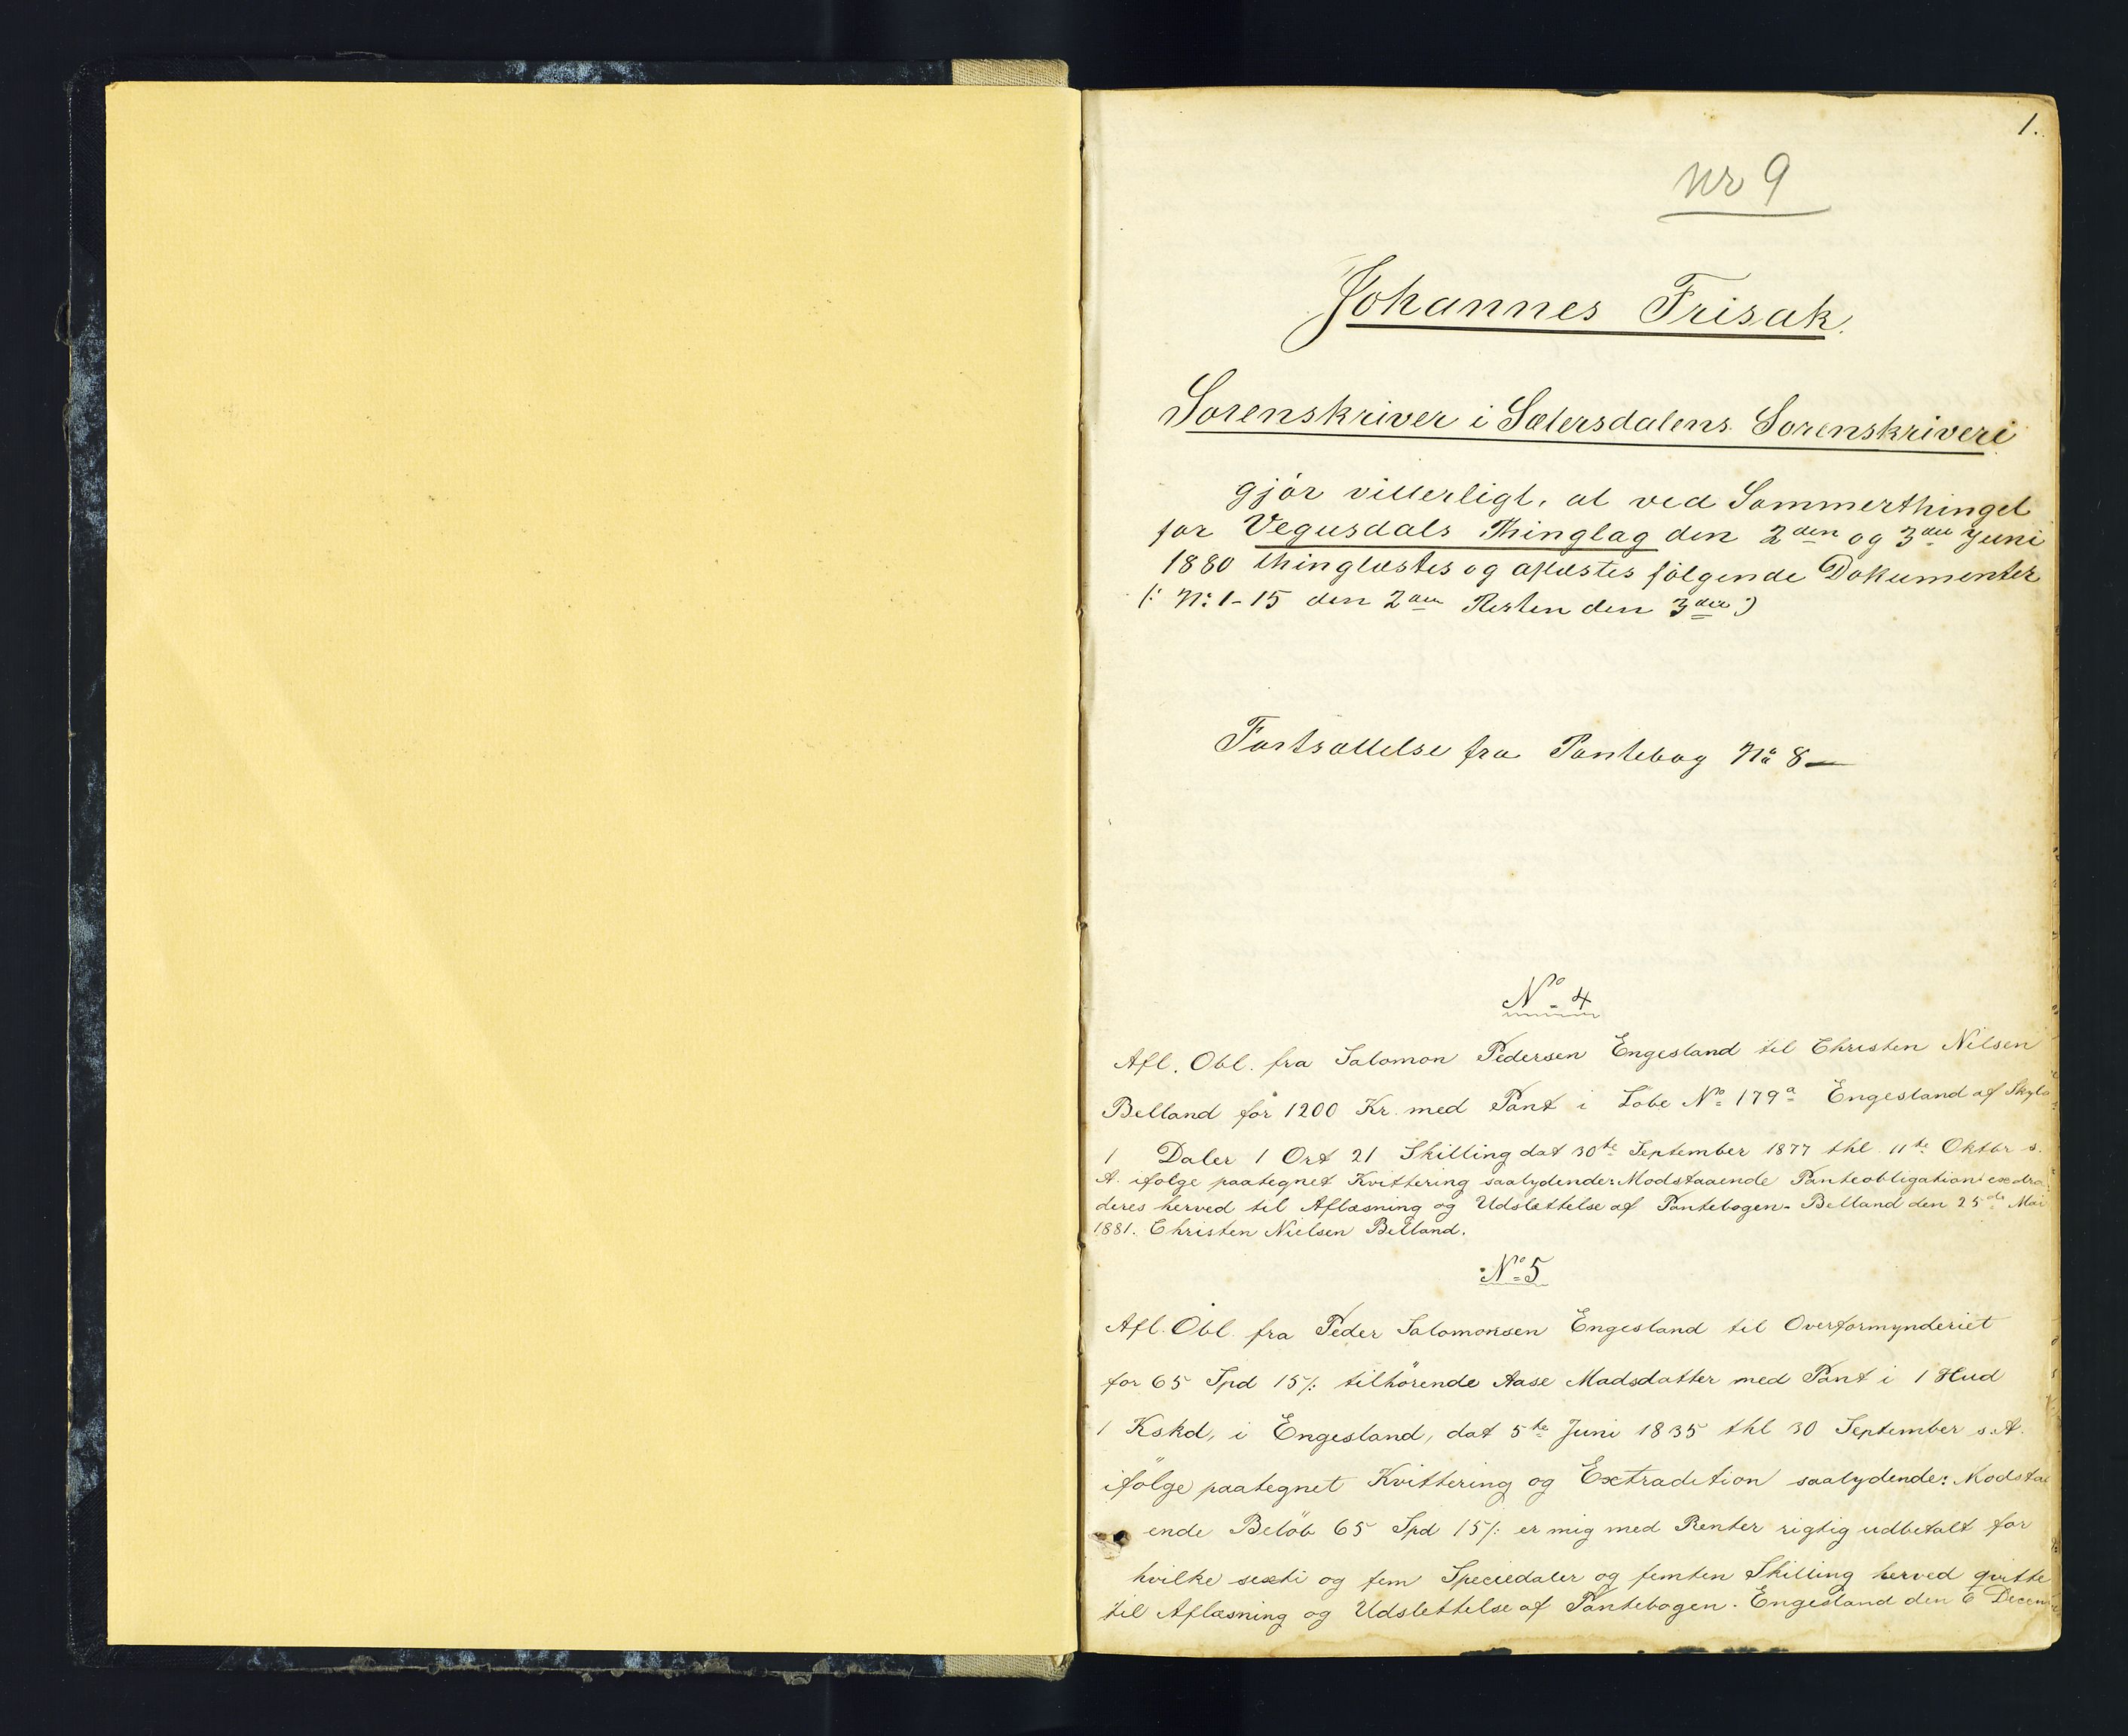 1.
Nr 9
Johannes Frisak.
Sorenskriver i Sætersdalens Sorenskriveri
gjör vitterligt, at ved Sommerthinget
for Vegusdals Thinglag den 2den og 3die Juni
1880 thinglæstes og aflæstes fölgende Dokumenter
(: No 1-15 den 2den Resten den 3die :)
Fortsættelse fra Pantebog No 8 —
No 4
Afl. Obl. fra Salomon Pedersen Engesland til Christen Nilsen
Belland for 1200 Kr. med Pant i Löbe No 179a Engesland af Skyld
1 Daler 1 Ort 21 Skilling dat 30te September 1877 thl. 11te Oktbr s.
A. ifölge paategnet Kvittering saalydende: Modstaaende Panteobligation exdra
deres herved til Aflæsning og Udslættelse af Pantebogen. Belland den 25de Mai
1881. Christen Nielsen Belland.
No 5
Afl. Obl. fra Peder Salomonsen Engesland til Overformynderiet
for 65 Spd 15/: tilhörende Aase Madsdatter med Pant i 1 Hud
1 Kskd, i Engesland, dat 5te Juni 1835 thl 30 September s. A.
ifölge paategnet Kvittering og Extradition saalydende: Modstaa
ende Belöb 65 Spd 15/: er mig med Renter rigtig udbetalt for
hvilke sexti og fem Speciedaler og femten Skilling herved qvitte
til Aflæsning og Udslettelse af Pantebogen. Engesland den 6 Decem